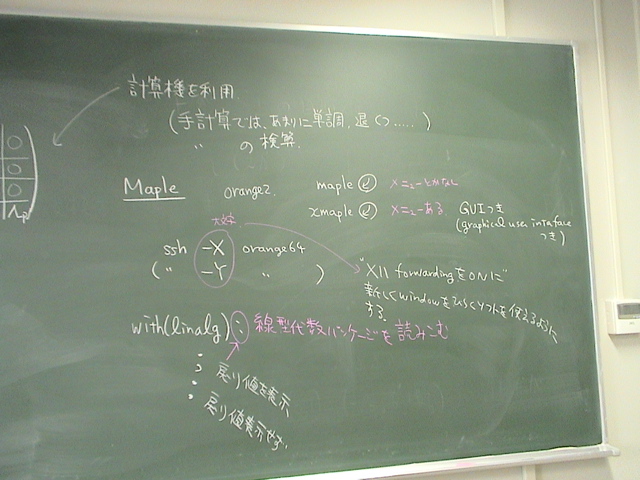 計算機を利用
(手計算では、あまりに単調、退くつ......)
〃 の検算.
0
0
0
Maple orange2. maple
xmaple メニューある. GUIつき
(graphical user interface
つき)
大文字
ssh -X orange64
(〃 -Y 〃 )
"X11 forwardingをONに"
新しくwindowをひらくソフトを使えるように
する.
with(linalg): 線型代数パッケージを読みこむ
; 戻り値を表示
: 戻り値表示せず.